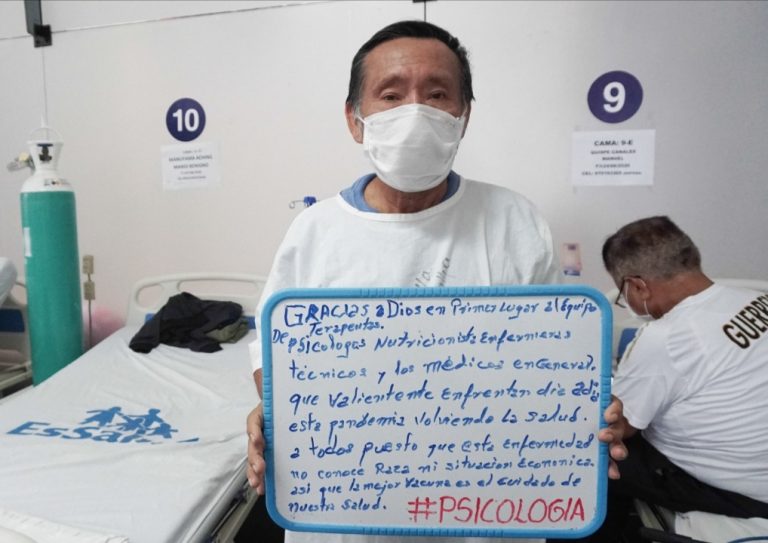 10
9
CAMA: 9-E
QUISPE CANALES
MANUEL
GUERRE
EsSalud
GRACIAS a Dios en Primer Lugar al Equipo
De Terapeutas.
Psicologas Nutricionista Enfermeras
técnicos y los médicos en General.
que valientemente Enfrentan dia a dia
esta pandemia volviendo la salud.
a todos puesto que esta Enfermedad
no conoce Raza ni situacion Economica.
asi que la mejor vacuna es el cuidado de
nuestra salud. #PSICOLOGIA